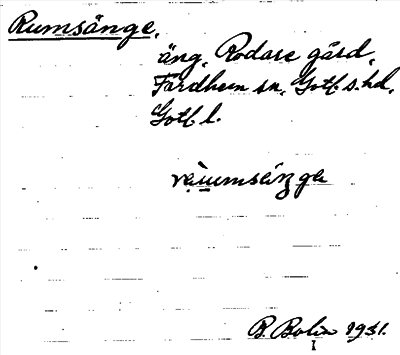 Rumsänge,
äng, Rodare gård,
Fardhem sn, Gotl. s. hd,
Gotl. l.
B. Bolin 1931.